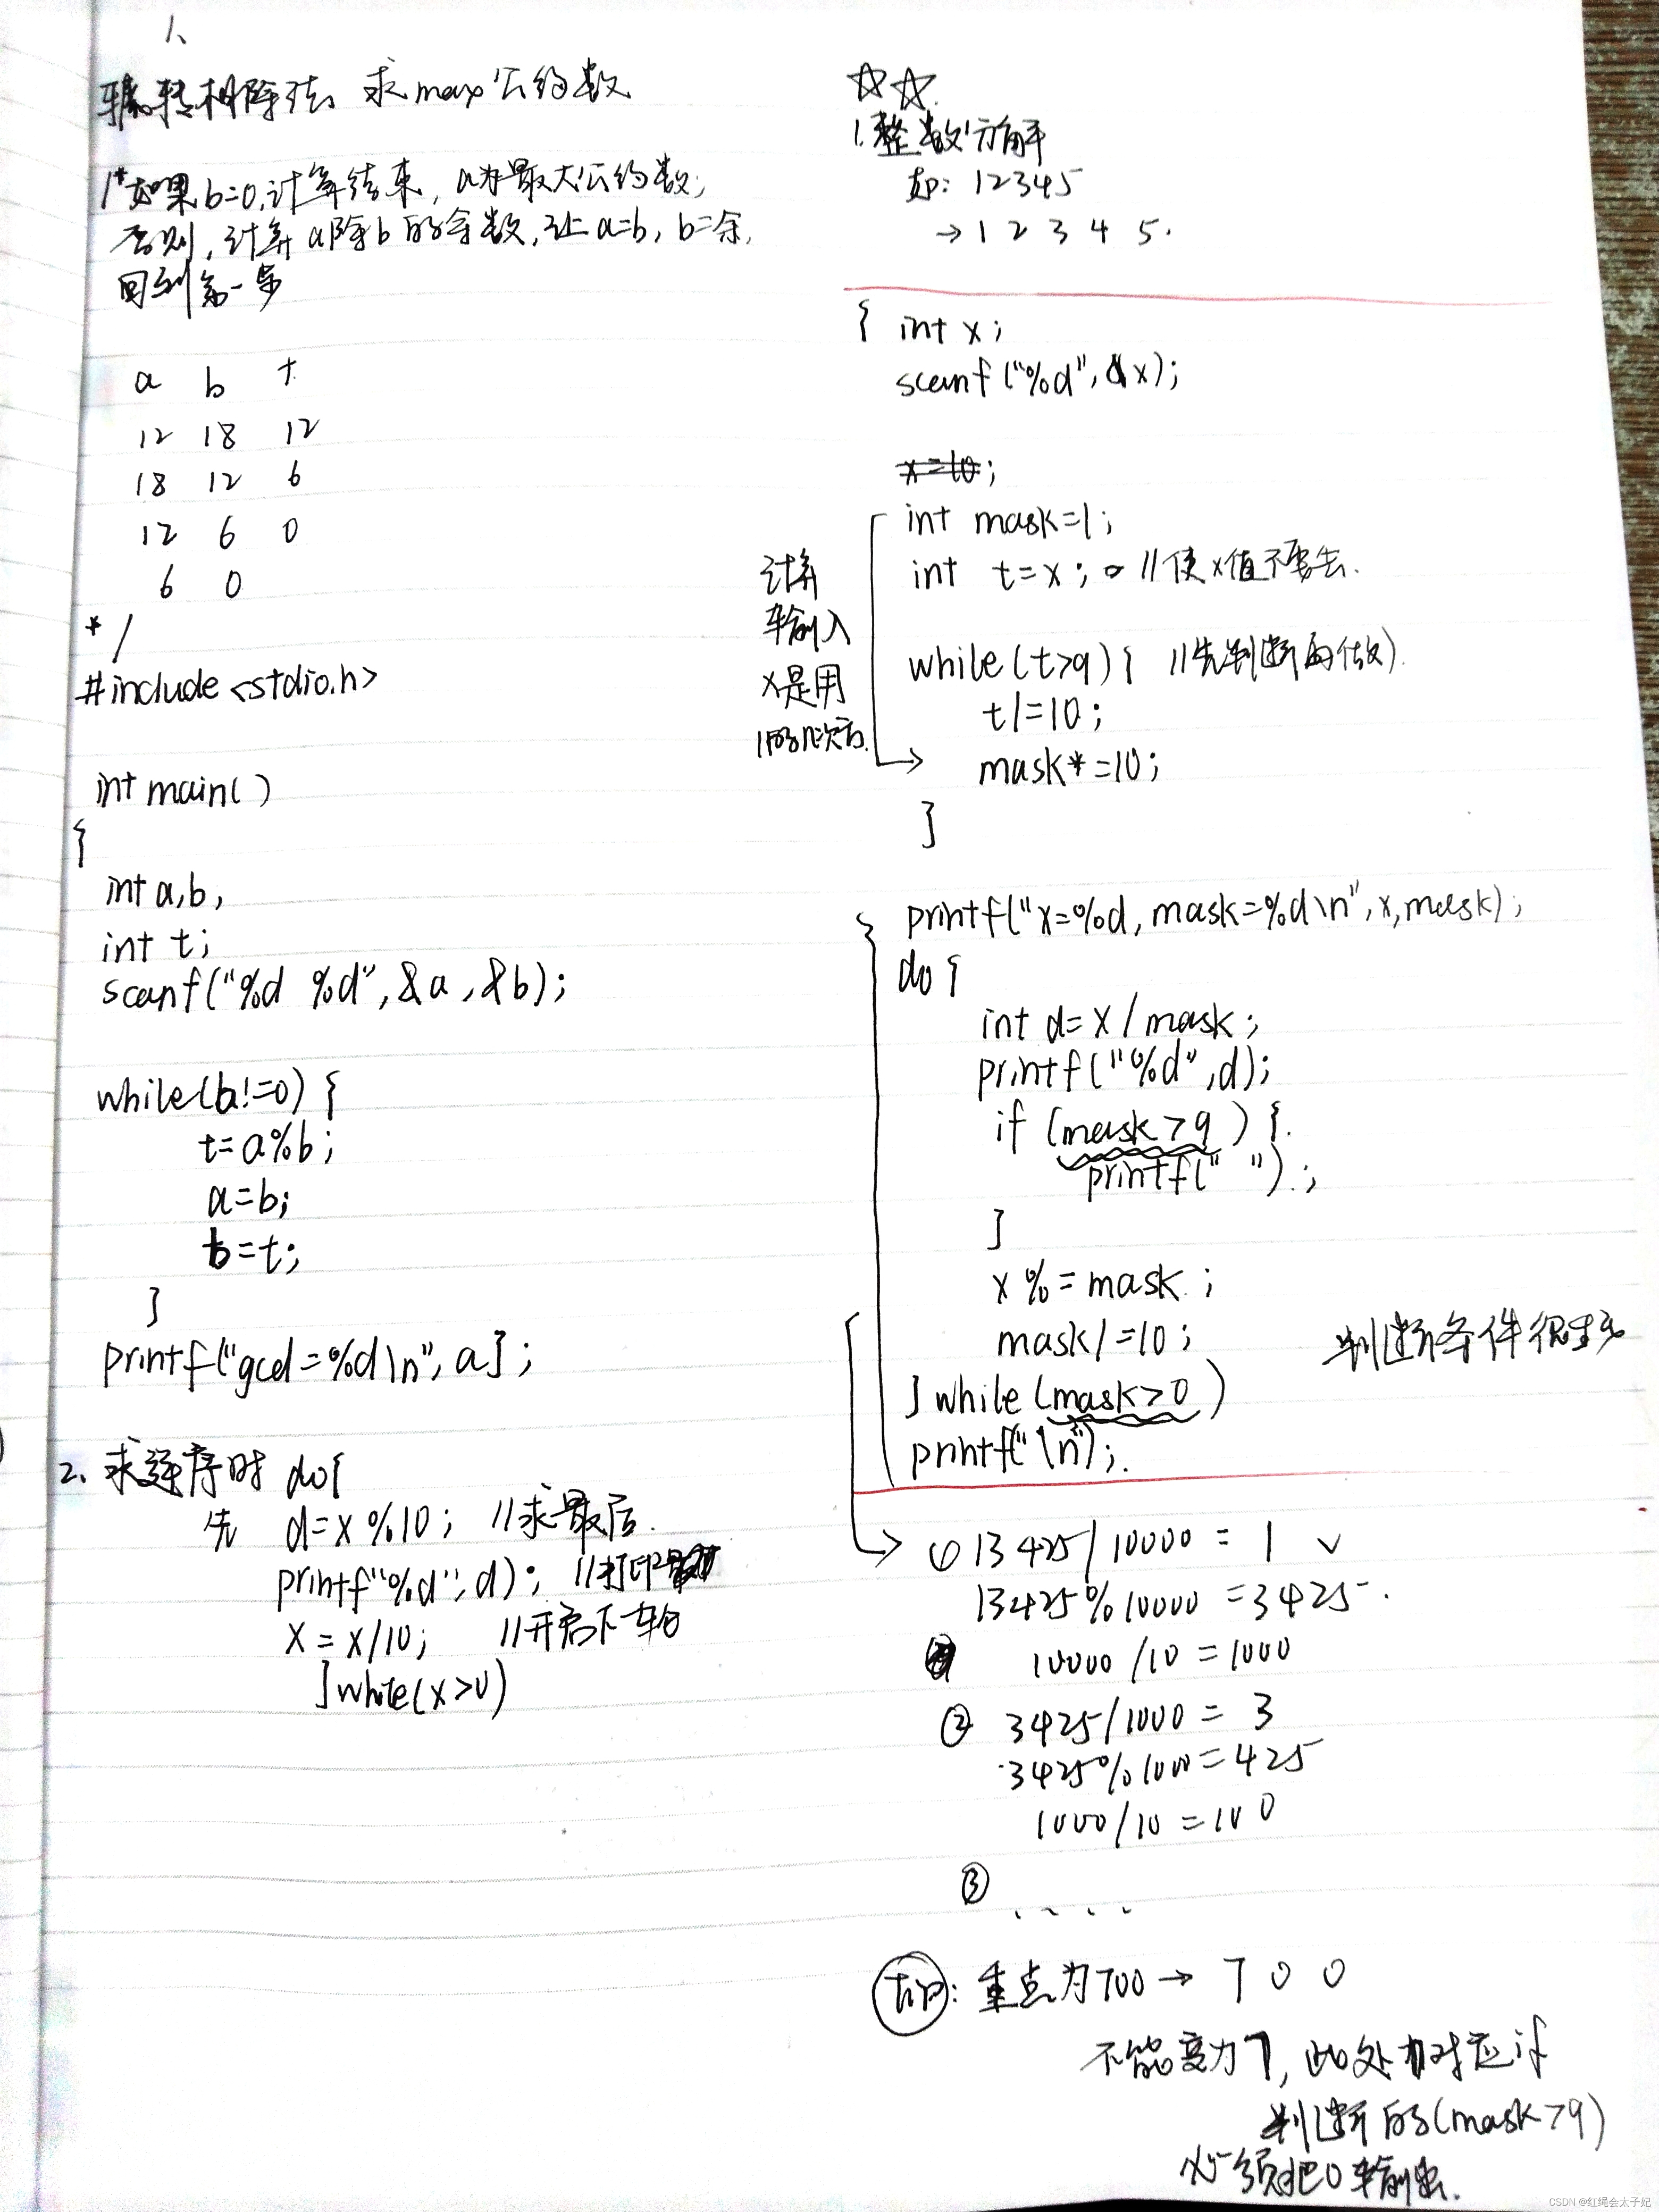 1、
辗转相除法 求max公约数
/*如果b=0,计算结束, a为最大公约数;
否则, 计算a除b的余数,让a=b, b=余,
回到第一步
a b t
12 18 12
18 12 6
12 6 0
6 0
*/
#include <stdio.h>
int main( )
{
int a,b,
int t;
scanf("%d %d",&a,&b);
while(b!=0) {
t=a%b;
a=b;
b=t;
}
printf("gcd=%d\n",a];
2、求逆序时 do{
先 d=x%10; //求最后.
printf"%d",d); //打印
x=x/10; //开启下一轮
}while(x>0)
☆☆
1.整数分解
如: 12345
→ 1 2 3 4 5.
{ int x;
scanf("%d",&x);
x=10;
int mask=1;
int t=x; //使x值不丢失.
while(t>9){ //先判断再做
t/=10;
mask*=10;
}
计算
输入
x是用
1的几次方.
printf("x=%d, mask=%d\n",x,mask);
do {
int d=x/mask;
printf("%d",d);
if (mask>9) {
printf(" ");
}
x%=mask;
mask/=10;
} while(mask>0)
printf("\n");
判断条件很
① 13425/10000 = 1 ✓
13425%10000=3425.
10000/10=1000
② 3425/1000=3
3425%1000=425
1000/10=100
③
....
: 重点为700→ 7 0 0
不能变为7, 此处对应if
判断的(mask>9)
必须把0输出.
CSDN @红绳会太子妃